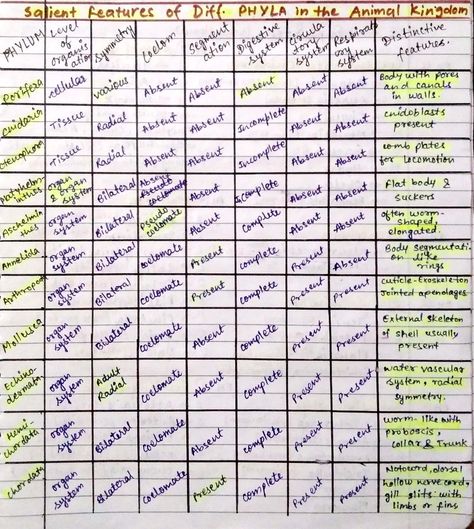 Salient Features of Diff. PHYLA in the Animal Kingdom
PHYLUM | Level of organisation | Symmetry | Coelom | Segmentation | Digestive system | Circulatory system | Respiratory system | Distinctive features.
Porifera | cellular | various | Absent | Absent | Absent | Absent | Absent | Body with pores and canals in walls.
Cnidaria | Tissue | Radial | Absent | Absent | Incomplete | Absent | Absent | cnidoblasts present
Ctenophora | Tissue | Radial | Absent | Absent | Incomplete | Absent | Absent | comb plates for locomotion
Platyhelminthes | organ & organ system | Bilateral | Absent | Absent | Incomplete | Absent | Absent | Flat body & suckers
Aschelminthes | organ system | Bilateral | Pseudo coelomate | Absent | complete | Absent | Absent | often worm-shaped, elongated.
Annelida | organ system | Bilateral | coelomate | Present | complete | Present | Absent | Body segmentation like rings
Arthropoda | organ system | Bilateral | coelomate | Present | complete | Present | Present | cuticle-Exoskeleton Jointed apendages
Mollusca | organ system | Bilateral | coelomate | Absent | complete | Present | Present | External skeleton of shell usually present
Echinodermata | organ system | Adult Radial | coelomate | Absent | complete | Present | Present | water vascular system, radial symmetry.
Hemichordata | organ system | Bilateral | coelomate | Absent | complete | Present | Present | worm-like with proboscis, collar & Trunk
Chordata | organ system | Bilateral | coelomate | Present | complete | Present | Present | Notocord, dorsal hollow nerve cord, gill slits with limbs or fins